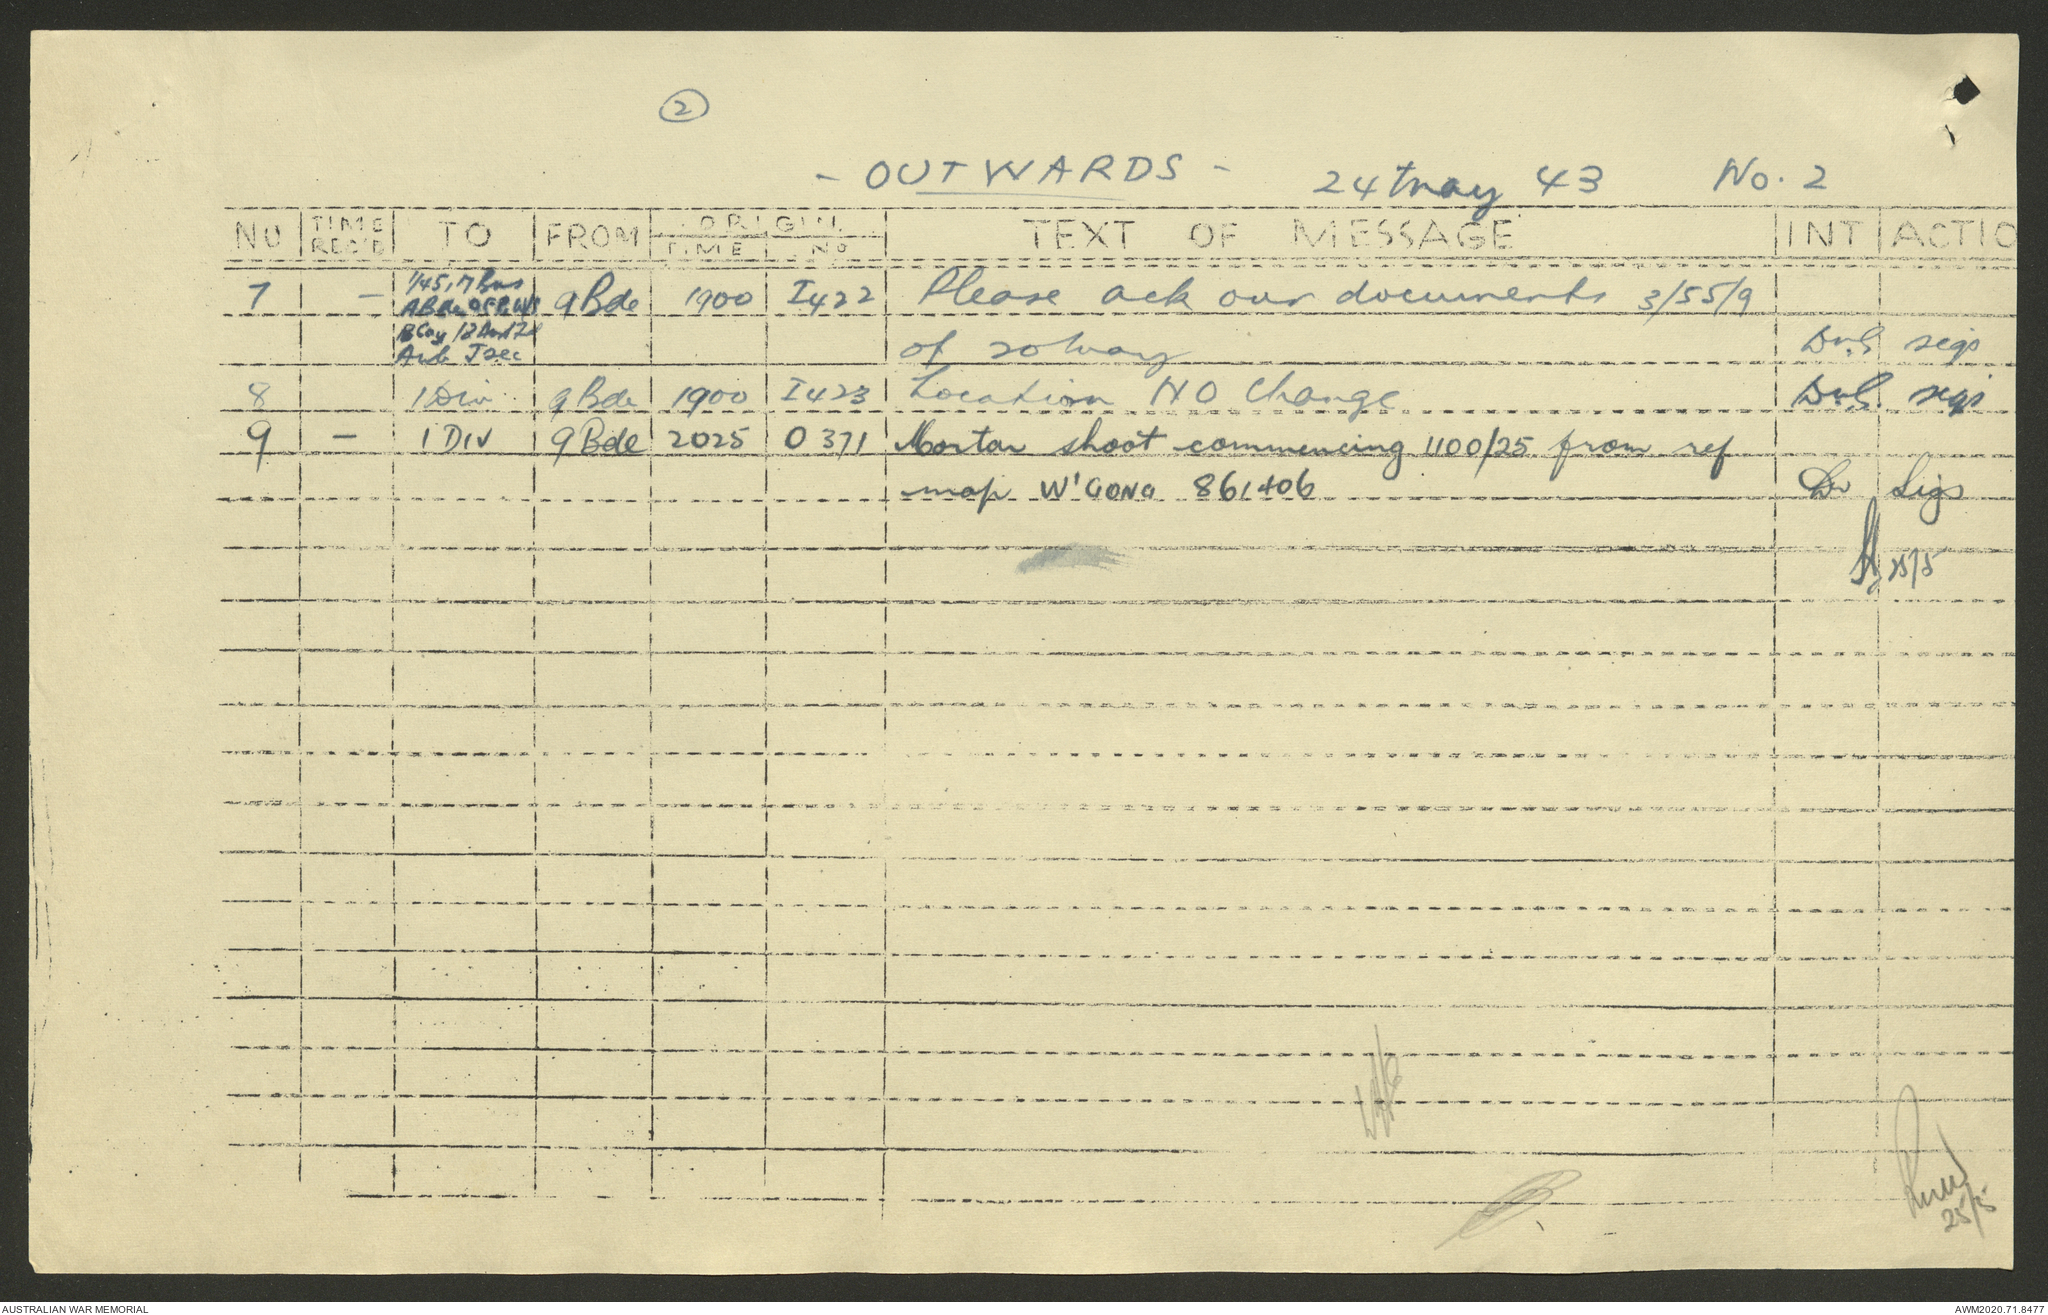 2
- OUTWARDS - 24 May 43 No. 2
NO TIME REC'D TO FROM ORIGIN TIME NO TEXT OF MESSAGE INT ACTIO
7 - 1/45, 17 Bns 9 Bde 1900 I422 Please ack our documents 3/55/9
B Coy
of 20 May sigs
8 1 Div 9 Bde 1900 I423 Location NO Change sigs
9 - 1 DIV 9 Bde 2025 O 371 Mortar shoot commencing 1100/25 from ref
map W'GONG 861406 Sigs
25/5
25/5
AUSTRALIAN WAR MEMORIAL
AWM2020.71.8477